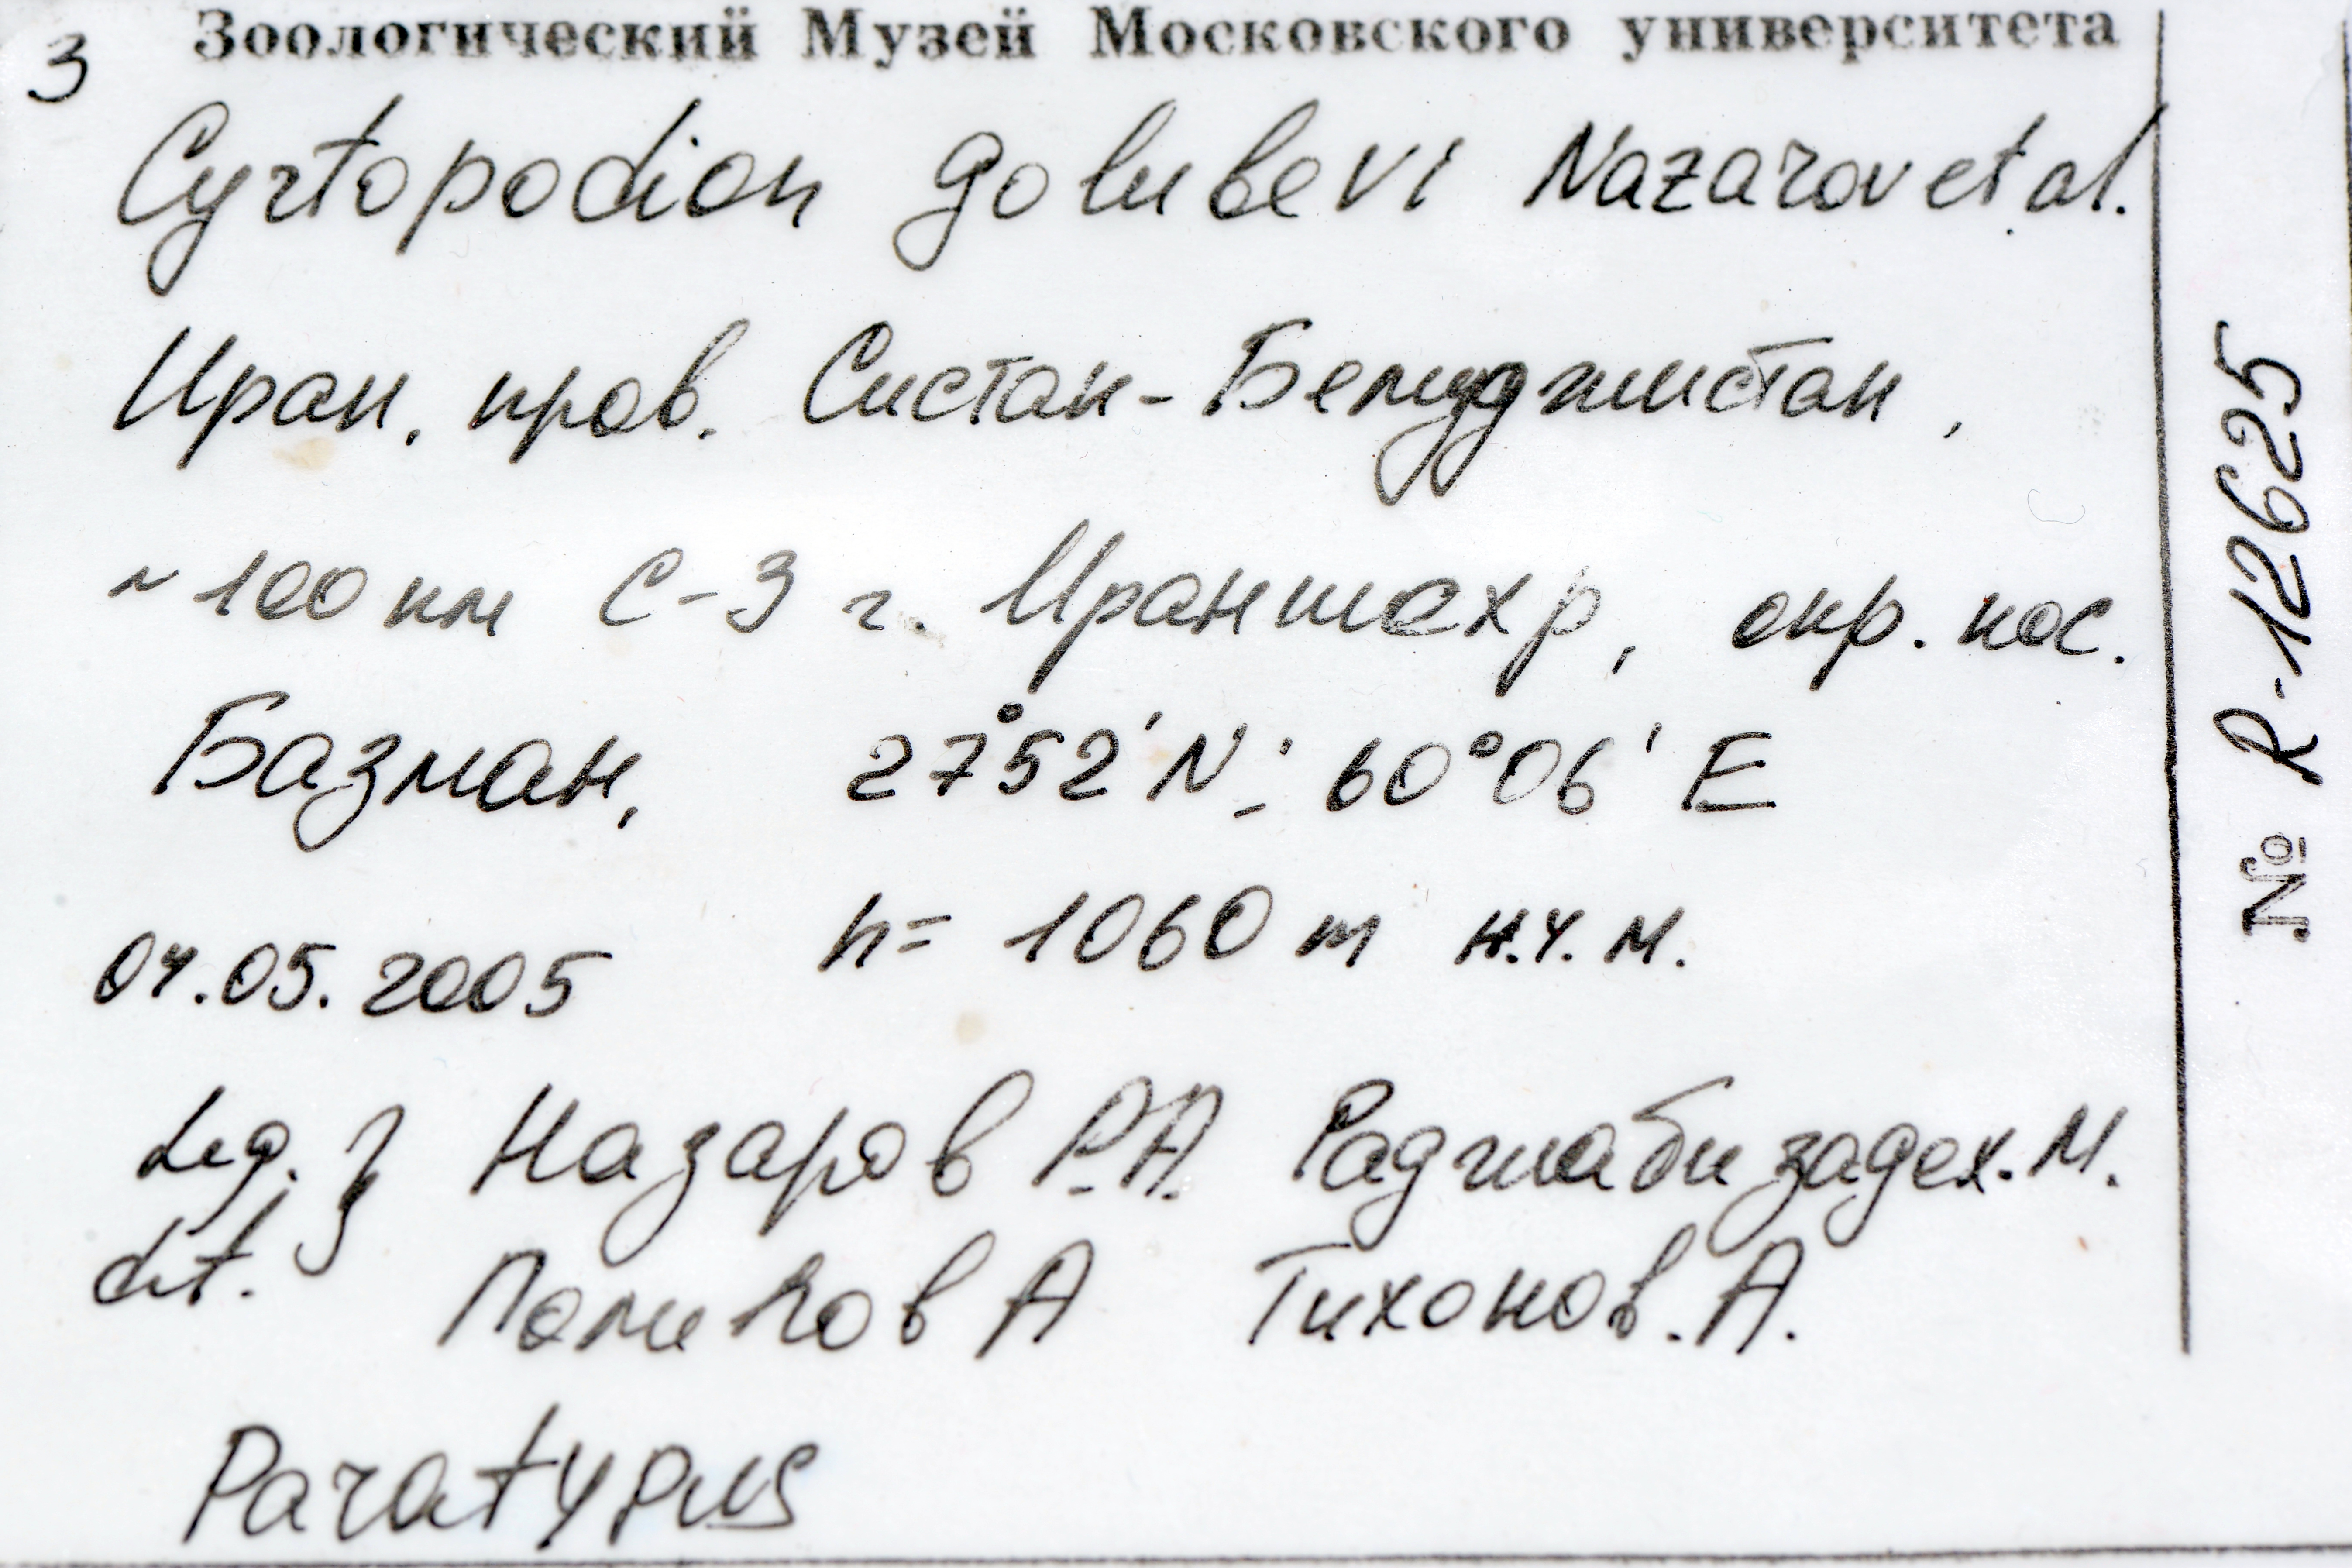 3 Зоологический Музей Московского университета
Cyrtopodion golubevi Nazarov et al.
Иран, пров. Систан-Белуджистан,
~ 100 км С-З г. Ираншехр, окр. пос.
Базман, 27°52'N; 60°06' E
h= 1060 m н.у.м.
04.05.2005
Leg. } Назаров Р.А. Раджабизадех. М.
det. Поликов А Тихонов. А.
Paratypus
№ R-12625